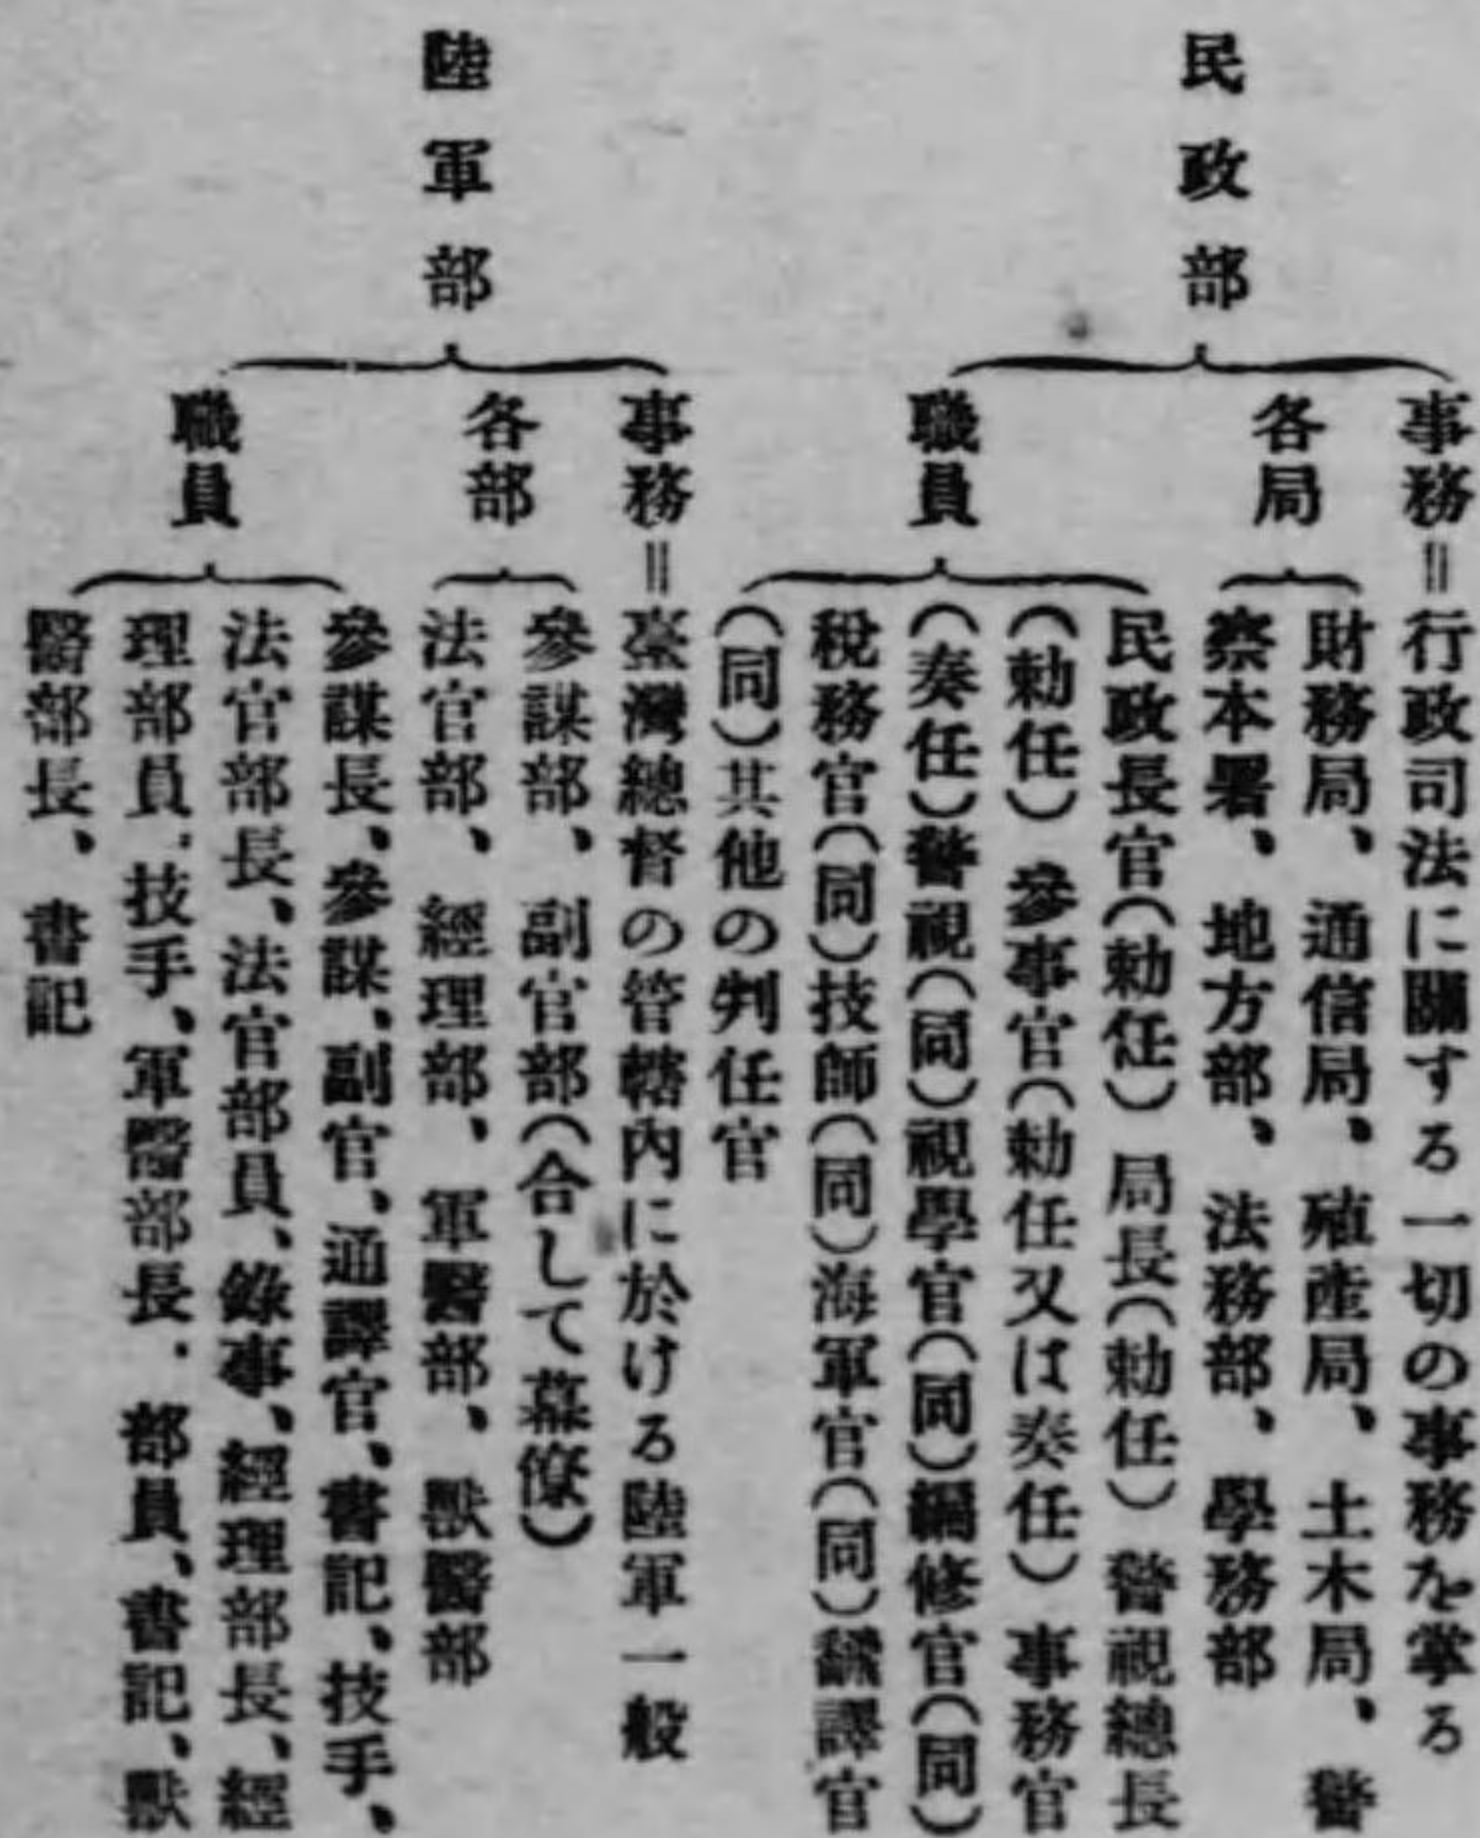 民政部
事務＝行政司法に關する一切の事務を掌る
各局
財務局、通信局、殖産局、土木局、警
察本署、地方部、法務部、學務部
職員
民政長官(勅任)局長(勅任)警視總長
(勅任)參事官(勅任又は奏任)事務官
(奏任)警視(同)視學官(同)編修官(同)
稅務官(同)技師(同)海軍官(同)飜譯官
(同)其他の判任官
陸軍部
事務＝臺灣總督の管轄內に於ける陸軍一般
各部
參謀部、副官部(合して幕僚)
法官部、經理部、軍醫部、獸醫部
職員
參謀長、參謀、副官、通譯官、書記、技手、
法官部長、法官部員、錄事、經理部長、經
理部員、技手、軍醫部長、部員、書記、獸
醫部長、書記